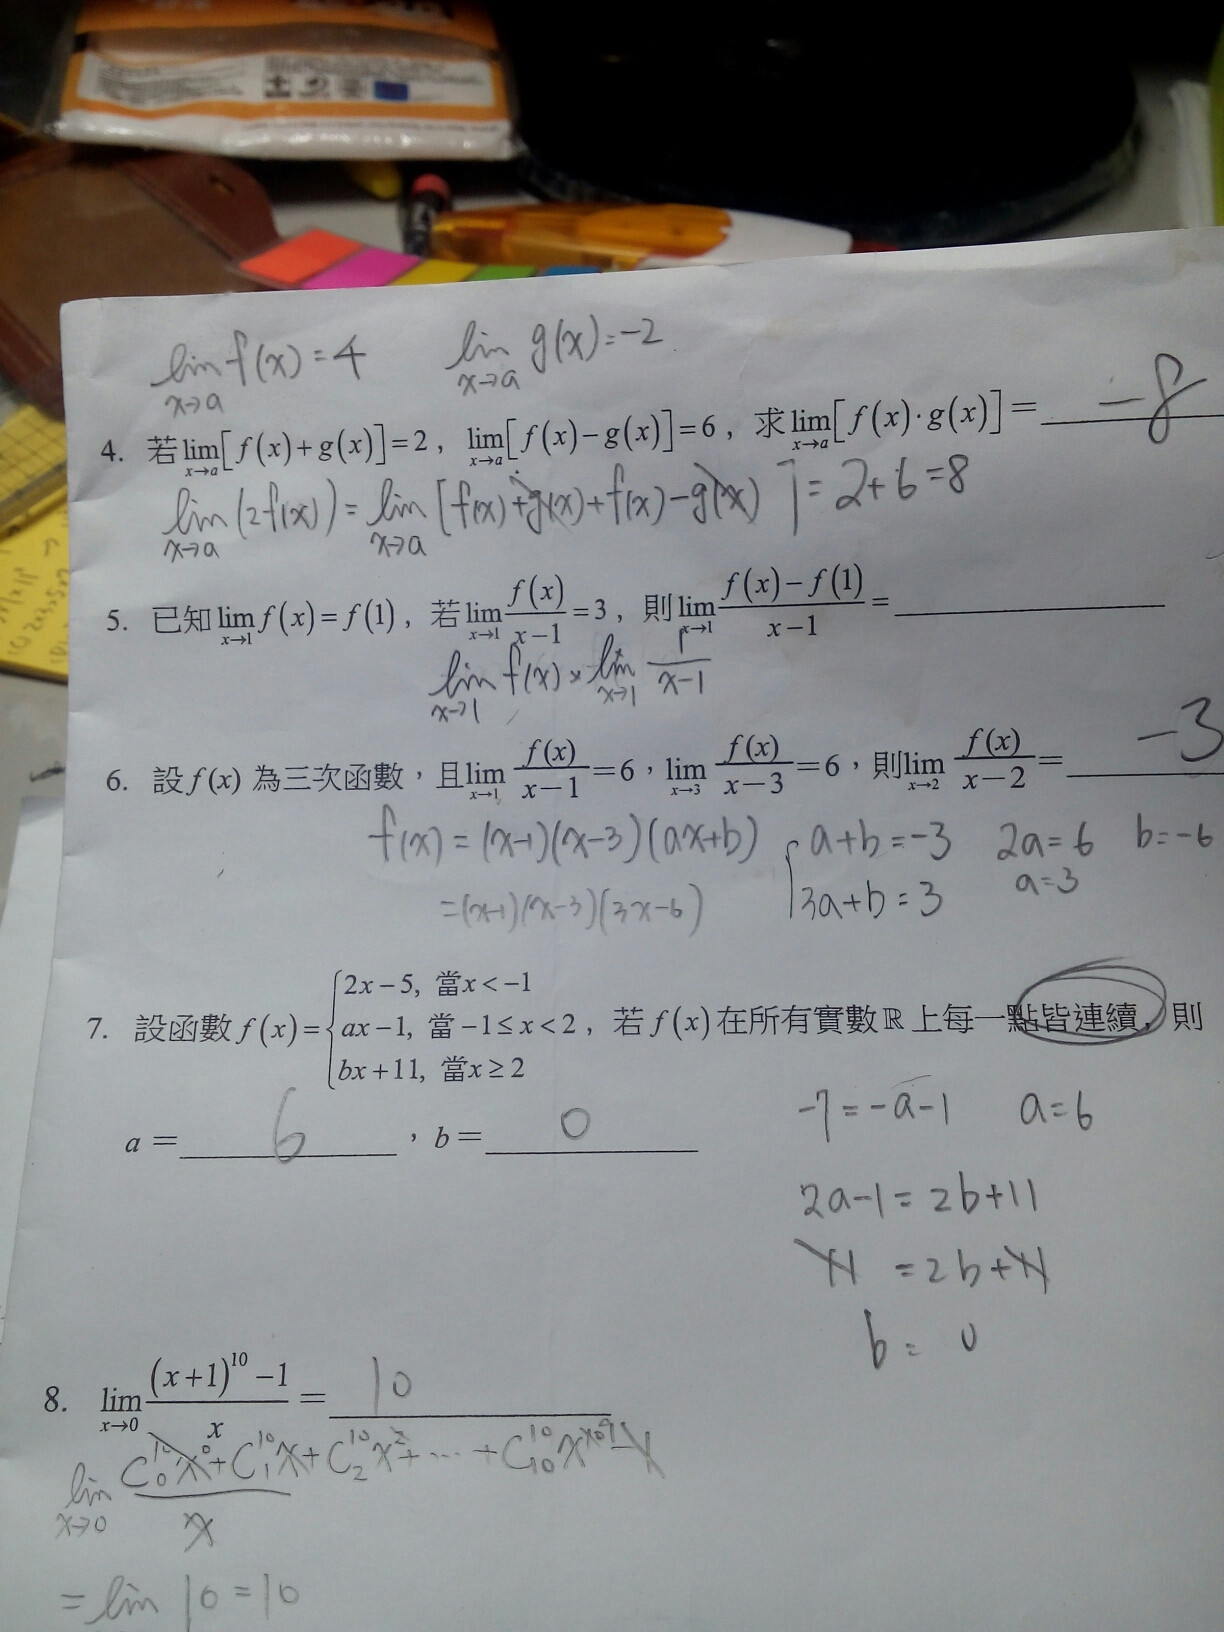 lim x→a f(x) = 4 lim x→a g(x) = -2
4. 若 lim x→a [f(x)+g(x)]=2, lim x→a [f(x)-g(x)]=6, 求 lim x→a [f(x)·g(x)]= -8
lim x→a (2f(x)) = lim x→a [f(x)+g(x)+f(x)-g(x)] = 2+6=8
5. 已知 lim x→1 f(x)=f(1), 若 lim x→1 f(x)/(x-1) =3, 則 lim x→1 (f(x)-f(1))/(x-1) =
lim x→1 f(x) × lim x→1 1/(x-1)
6. 設 f(x) 為三次函數,且 lim x→1 f(x)/(x-1) =6,lim x→3 f(x)/(x-3) =6,則 lim x→2 f(x)/(x-2) = -3
f(x) = (x-1)(x-3)(ax+b) { a+b=-3 2a=6 b=-6
=(x-1)(x-3)(3x-6) 3a+b=3 a=3
2x-5, 當x<-1
7. 設函數 f(x)={ ax-1, 當-1≤x<2, 若 f(x) 在所有實數 ℝ 上每一點皆連續,則
bx+11, 當x≥2
a= 6 , b= 0
-7=-a-1 a=6
2a-1=2b+11
11 =2b+11
b= 0
8. lim x→0 ((x+1)^10 -1)/x = 10
lim x→0 (C₀¹⁰x⁰+C₁¹⁰x+C₂¹⁰x²+...+C₁₀¹⁰x¹⁰-1)/x
= lim 10 = 10